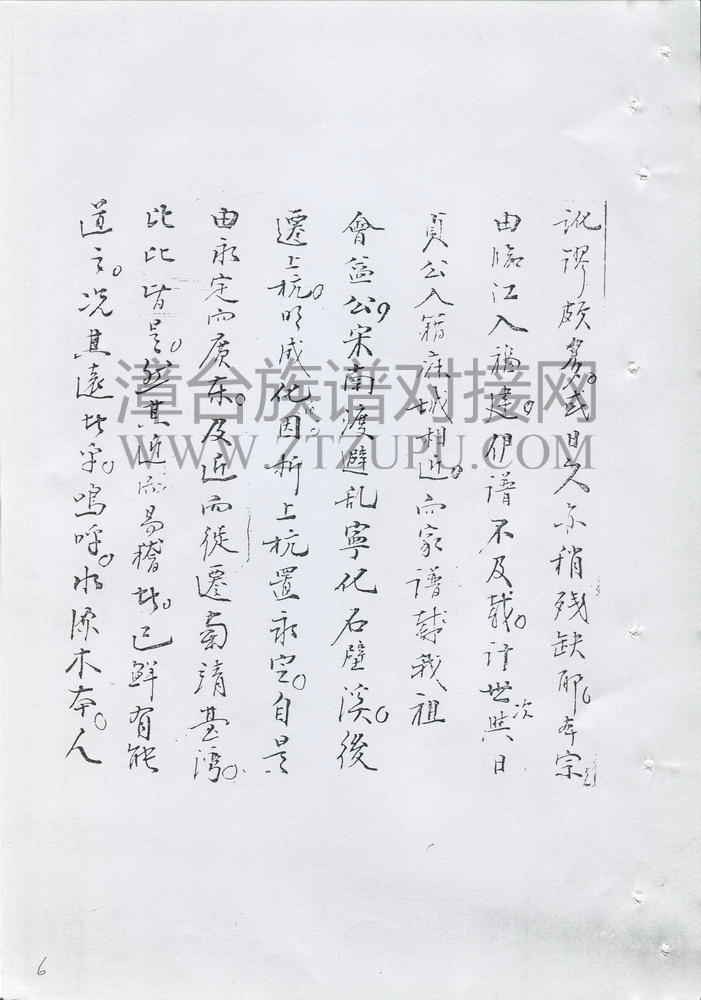 訛謬頗多。或日久亦稍殘缺耶。本宗
由臨江入福建。伊譜不及載。計世次與日
貞公入籍底城相近。而家譜載我祖
會益公，宋南渡避乱寧化石壁溪。後
遷上杭。明成化因析上杭置永定。自是
由永定而廣东。及近而徙遷南靖臺灣。
比比皆是。然其近而易稽者。已鮮有能
道之。况其遠者乎。嗚呼。水源木本。人
漳台族谱对接网
WWW.ZTZUPU.COM
6